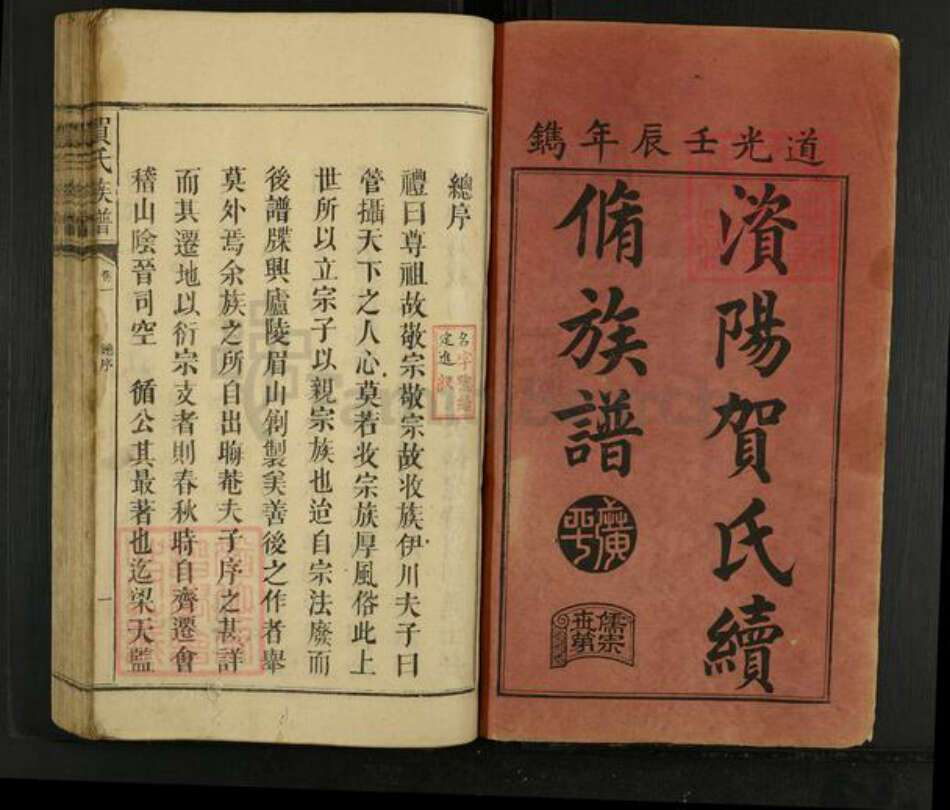 道光壬辰年鐫
濱陽賀氏續
脩族譜
廣平
儒宗
世第
總序
禮曰尊祖故敬宗敬宗故收族伊川夫子曰
管攝天下之人心莫若收宗族厚風俗此上
世所以立宗子以親宗族也迨自宗法廢而
後譜牒興廬陵眉山剏製矣善後之作者舉
莫外焉余族之所自出晦菴夫子序之甚詳
而其遷地以衍宗支者則春秋時自齊遷會
稽山陰晉司空 循公其最著也迄梁天監
賀氏族譜
卷一
總序
一